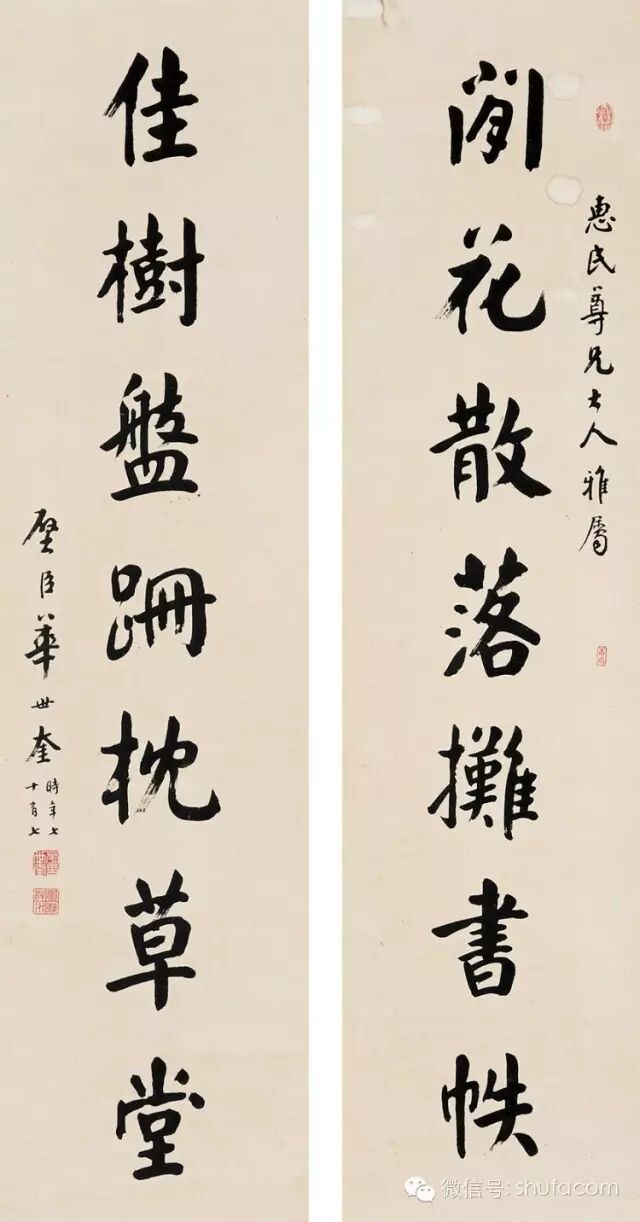 惠民尊兄大人雅屬
閒花散落攤書帙
佳樹盤跚枕草堂
璧臣華世奎
時年七
十有七
微信号: shufacom